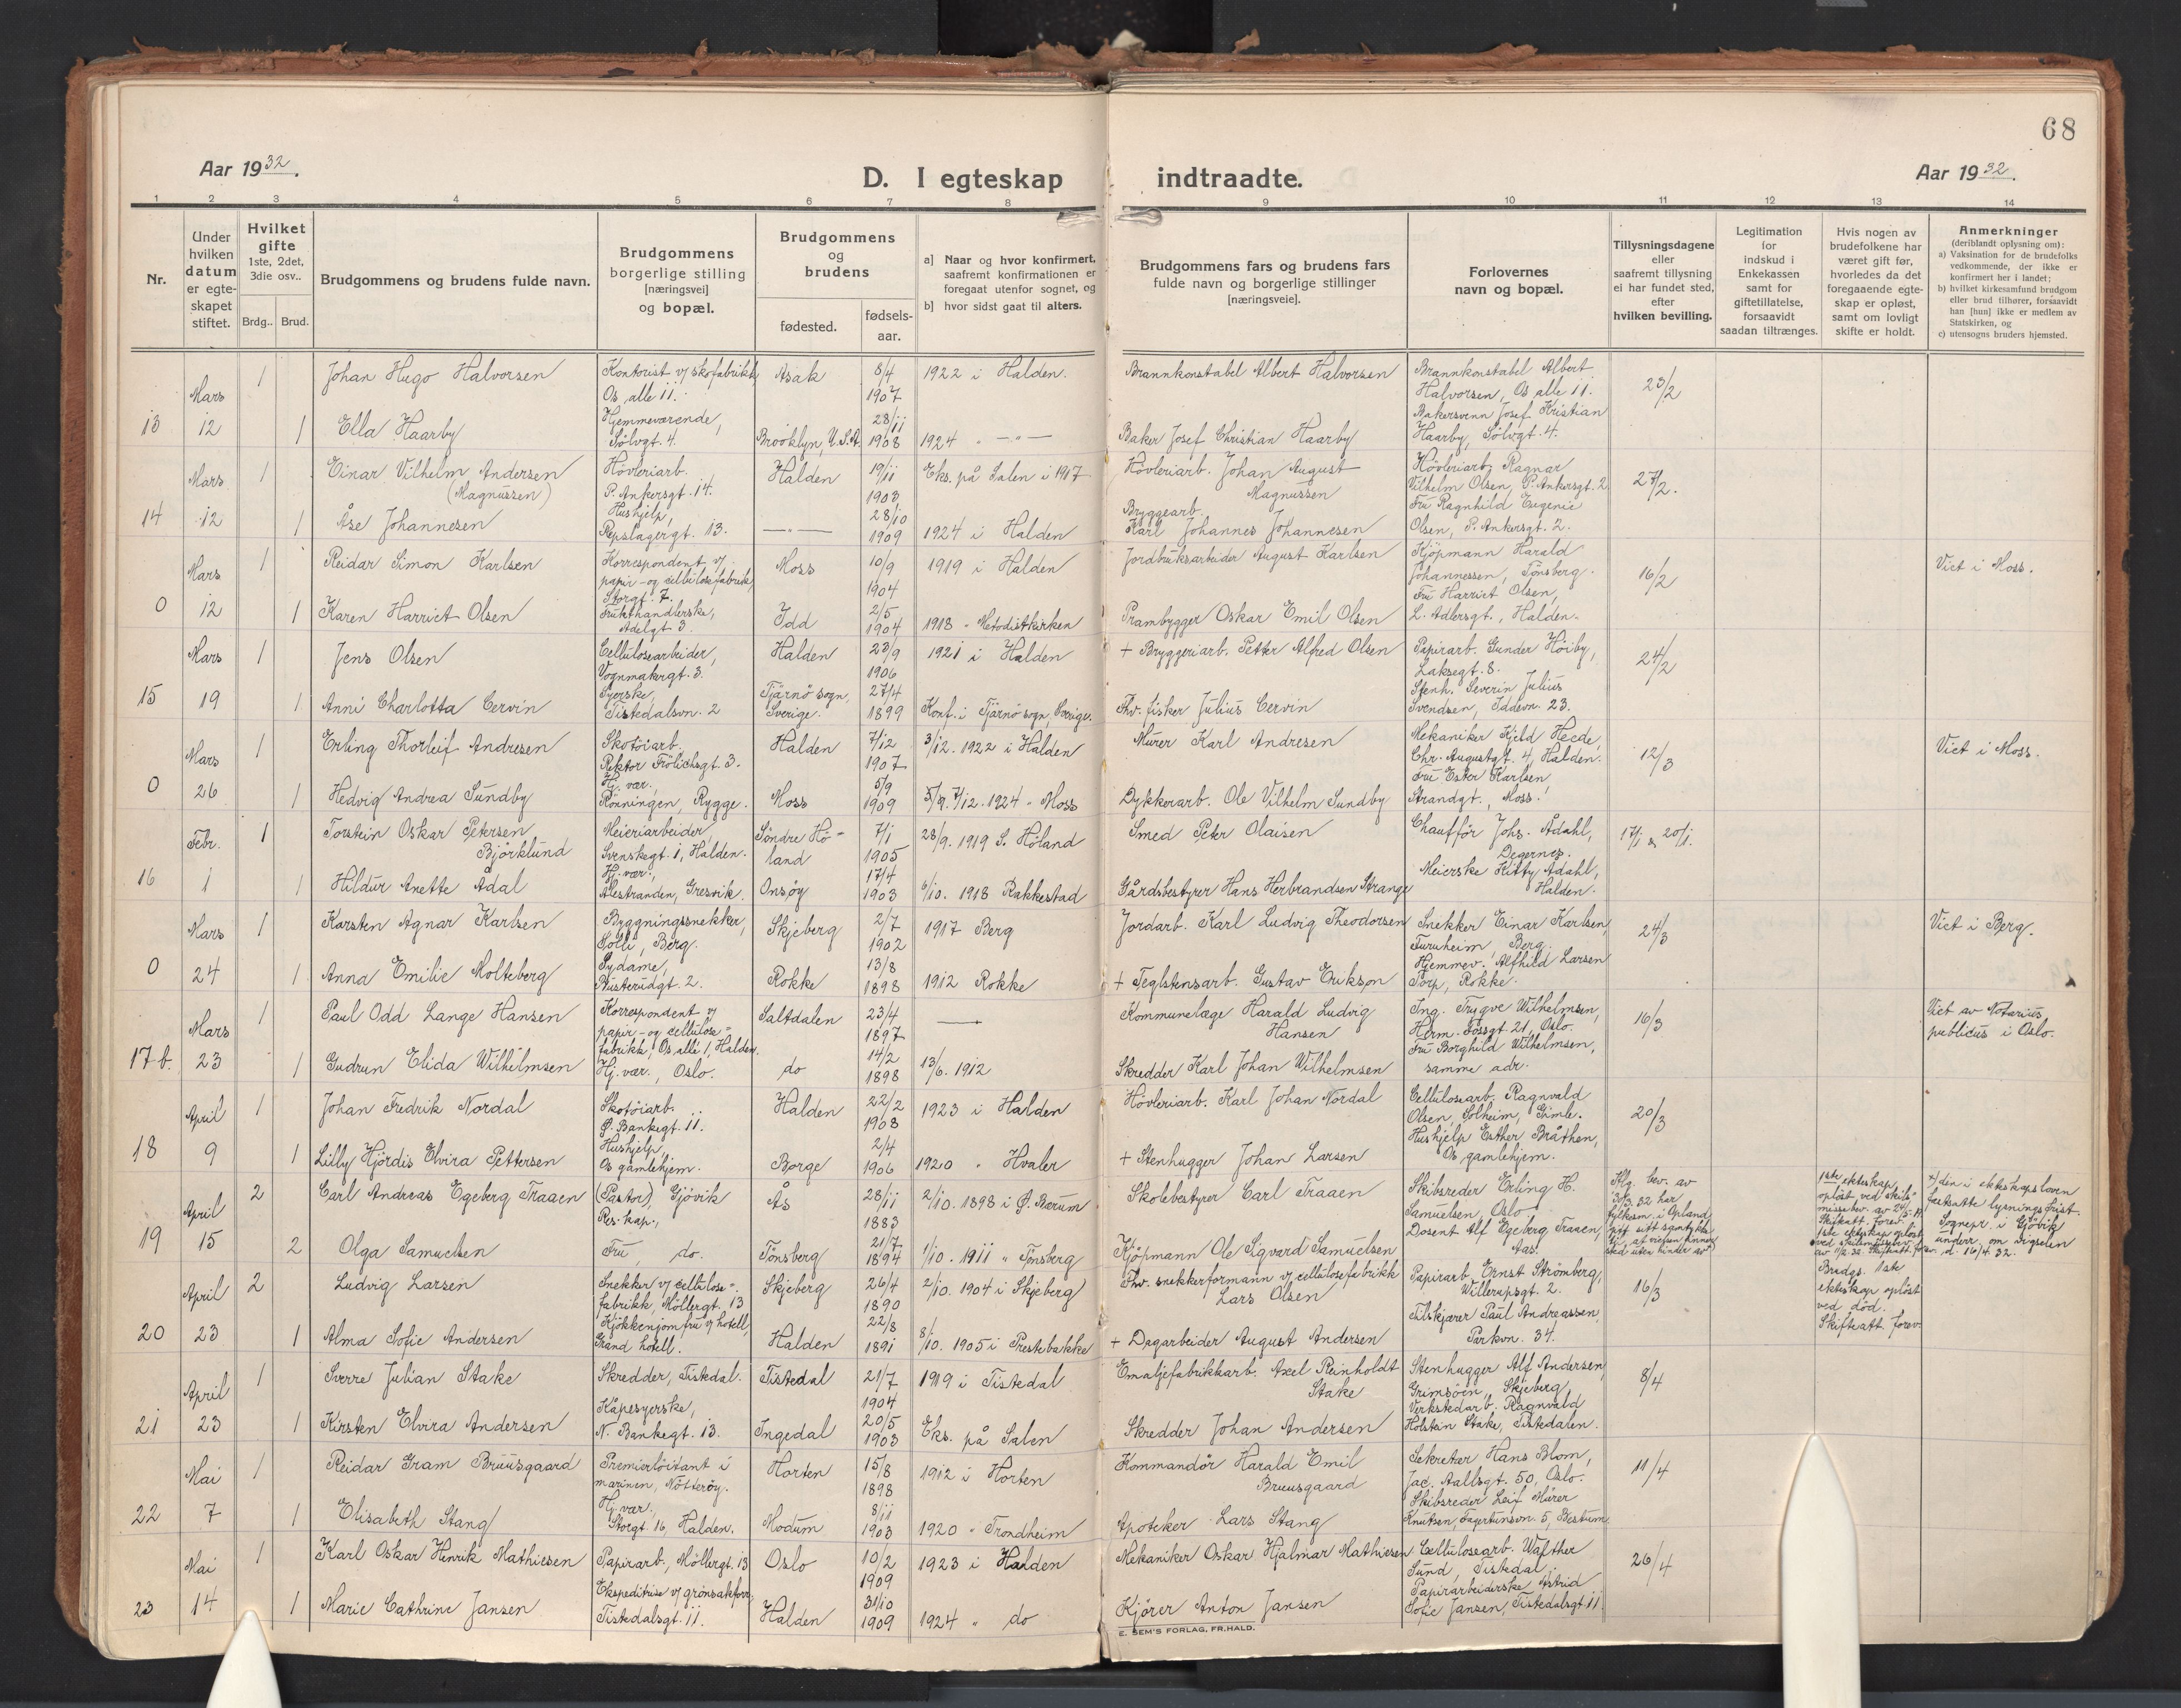 68
Aar 1932.
D. I egteskap indtraadte.
Aar 1932.
1 2 3 4 5 6 7 8 9 10 11 12 13 14
Nr.
Under hvilken datum er egte-skapet stiftet.
Hvilket gifte 1ste, 2det, 3die osv..
Brdg.. Brud.
Brudgommens og brudens fulde navn.
Brudgommens borgerlige stilling [næringsvei] og bopæl.
Brudgommens og brudens
fødested.
fødsels-aar.
a] Naar og hvor konfirmert, saafremt konfirmationen er foregaat utenfor sognet, og
b] hvor sidst gaat til alters.
Brudgommens fars og brudens fars fulde navn og borgerlige stillinger [næringsveie].
Forlovernes navn og bopæl.
Tillysningsdagene eller saafremt tillysning ei har fundet sted, efter hvilken bevilling.
Legitimation for indskud i Enkekassen samt for giftetillatelse, forsaavidt saadan tiltrænges.
Hvis nogen av brudefolkene har været gift før, hvorledes da det foregaaende egte-skap er opløst, samt om lovligt skifte er holdt.
Anmerkninger (deriblandt oplysning om):
a) Vaksination for de brudefolks vedkommende, der ikke er konfirmert her i landet;
b) hvilket kirkesamfund brudgom eller brud tilhører, forsaavidt han [hun] ikke er medlem av Statskirken, og
c) utensogns bruders hjemsted.
Mars 1 Johan Hugo Halvorsen Kontorist v/ skofabrikk, Os alle 11. Asak 8/4 1907 1922 i Halden. Brannkonstabel Albert Halvorsen Brannkonstabel Albert Halvorsen, Os alle 11. 23/2
13 12 1 Ella Haarby Hjemmeværende, Sølvgt. 4. Brooklyn, U.S.A. 28/11 1908 1924 " — " — Baker Josef Christian Haarby Bakersvenn Josef Kristian Haarby, Sølvgt. 4.
Mars 1 Einar Vilhelm Andersen (Magnussen) Høvleriarb. P. Ankersgt. 14. Halden 19/11 1903 Eks. på Salen i 1917 Høvleriarb. Johan August Magnussen Høvleriarb. Ragnar Vilhelm Olsen, P. Ankersgt. 2 27/2.
14 12 1 Åse Johannesen Hushjelp, Repslagergt. 13. — " — 28/10 1909 1924 i Halden Bryggearb. Karl Johannes Johannesen Fru Ragnhild Eugenie Olsen, P. Ankersgt. 2.
Mars 1 Reidar Simon Karlsen Korrespondent v/ papir- og cellulosefabrikk, Storgt. 7. Moss 10/9 1904 1919 i Halden Jordbruksarbeider August Karlsen Kjøpmann Harald Johannessen, Tønsberg. 16/2 Viet i Moss.
0 12 1 Karen Harriet Olsen Frukthandlerske, Adelgt 3. Idd 2/5 1904 1918 " Metodistkirken Prambygger Oskar Emil Olsen Fru Harriet Olsen, L. Adlersgt., Halden.
Mars 1 Jens Olsen Cellulosearbeider, Vognmakergt. 3. Halden 23/9 1906 1921 i Halden + Bryggeriarb. Petter Alfred Olsen Papirarb. Gunder Høiby, Laksegt. 8. 24/2
15 19 1 Anni Charlotta Cervin Syerske, Tistedalsvn. 2 Tjärnö sogn, Sverige. 27/4 1899 Konf. i Tjärnö sogn, Sverige. Fhv. fisker Julius Cervin Stenh. Severin Julius Svendsen, Iddevn. 23.
Mars 1 Erling Thorleif Andresen Skotøiarb. Rektor Frölichsgt. 3. Halden 7/12 1907 3/12. 1922 i Halden Murer Karl Andresen Mekaniker Kjeld Heede, Chr. Augustgt. 4, Halden. 12/3 Viet i Moss.
0 26 1 Hedvig Andrea Sundby Hj. vær. Rønningen, Rygge. Moss 5/9 1909 7/12. 1924 " Moss Dykkerarb. Ole Vilhelm Sundby Fru Ester Karlsen Strandgt., Moss.
Febr. 1 Torstein Oskar Petersen Bjørklund Meieriarbeider, Svenskegt. 1, Halden. Søndre Høland 7/1 1905 28/9. 1919 S. Höland Smed Peter Olaisen Chauffør Johs. Ådahl, Degernes. 17/1 & 20/1.
16 1 1 Hildur Anette Ådal Hj. vær., Alestranden, Gresvik. Onsøy 17/4 1903 6/10. 1918 Rakkestad Gårdsbestyrer Hans Herbrandsen Strange Meierske Kitty Ådahl, Halden.
Mars 1 Karsten Agnar Karlsen Bygningssnekker, Solli, Berg. Skjeberg 2/7 1902 1917 Berg Jordarb. Karl Ludvig Theodorsen Snekker Einar Karlsen, Furuheim, Berg. 24/3 Viet i Berg.
0 24 1 Anna Emilie Molteberg Sydame, Busterudgt. 2. Rokke 13/8 1898 1912 Rokke + Teglstensarb. Gustav Erikson Hjemmev. Alfhild Larsen Torp, Rokke.
Mars 1 Paul Odd Lange Hansen Korrespondent v/ papir- og cellulosefabrikk, Os allé 1, Halden. Saltdalen 23/4 1897 — Kommunelæge Harald Ludvig Hansen Ing. Trygve Wilhelmsen, Herm. Fossgt 21, Oslo. 16/3 Viet av Notarius publicus i Oslo.
17 b. 23 1 Gudrun Elida Wilhelmsen Hj. vær., Oslo. do 14/2 1898 13/6. 1912 Skredder Karl Johan Wilhelmsen Fru Borghild Wilhelmsen, samme adr.
April 1 Johan Fredrik Nordal Skotøiarb. Ø. Bankegt. 11. Halden 22/2 1903 1923 i Halden Høvleriarb. Karl Johan Nordal Cellulosearb. Ragnvald Olsen, Solheim, Gimle. 20/3
18 9 1 Lilly Hjørdis Elvira Pettersen Hushjelp, Os gamlehjem. Borge 2/4 1906 1920 " Hvaler + Stenhugger Johan Larsen Hushjelp Esther Bråthen, Os gamlehjem.
April 2 Carl Andreas Egeberg Traaen (Pastor), Gjøvik Res. kap., Ås 28/11 1883 2/10. 1898 i Ø. Bærum Skolebestyrer Carl Traaen Skibsreder Erling H. Samuelsen, Oslo Kgl. bev. av 30/3.32 har fylkesm. i Opland gitt sitt samtykke til at vielsen finner sted uten hinder av 1ste ekteskap opløst ved skilsmissebev. av Skifteatt. forev. x/den i ekteskapsloven fastsatte lysningsfrist. Sognepr. i Gjøvik underr. om vigselen d. 16/4 32.
19 15 2 Olga Samuelsen Fru, do. Tønsberg 21/7 1894 1/10. 1911 " Tønsberg Kjøpmann Ole Sigvard Samuelsen Dosent Alf Egeberg Traaen, Aas. 1ste ekteskap opløst ved skilsmissebev. av 1/2.32. Skifteatt. forev.
April 2 Ludvig Larsen Snekker v/ cellulosefabrikk, Møllergt. 13 Skjeberg 26/4 1890 2/10. 1904 i Skjeberg Fhv. snekkerformann v/ cellulosefabrikk Lars Olsen Papirarb. Ernst Strømberg, Willerupsgt. 2. 16/3 Brudgs. 1ste ekteskap opløst ved død. Skifteatt. forev.
20 23 1 Alma Sofie Andersen Kjøkkenjomfru v/ hotell, Grand hotell. Halden 22/8 1891 8/10. 1905 i Prestebakke + Dagarbeider August Andersen Tilskjærer Paul Andreassen, Parkvn. 34.
April 1 Sverre Julian Stake Skredder, Tistedal. Tistedal 21/7 1904 1919 i Tistedal Emaljefabrikkarb. Axel Reinholdt Stake Stenhugger Alf Andersen, Grimsøen, Skjeberg 8/4
21 23 1 Kirsten Elvira Andersen Kåpesyerske, N. Bankegt. 13. Ingedal 20/5 1903 Eks. på Salen Skredder Johan Andersen Verkstedarb. Ragnvald Holstein Stake, Tistedalen.
Mai 1 Reidar Gram Bruusgaard Premierløitnant i marinen, Nøtterøy. Horten 15/8 1898 1912 i Horten Kommandør Harald Emil Bruusgaard Sekretær Hans Blom, Jac. Aallsgt. 50, Oslo. 11/4
22 7 1 Elisabeth Stang Hj. vær. Storgt. 16, Halden. Modum 8/11 1903 1920 " Trondheim Apoteker Lars Stang Skibsreder Leif Mürer Knutsen, 5, Bestum
Mai 1 Karl Oskar Henrik Mathiesen Papirarb., Møllergt. 13 Oslo 10/2 1909 1923 i Halden Mekaniker Oskar Hjalmar Mathiesen Cellulosearb. Walther Sund, Tistedal 26/4
23 14 1 Marie Cathrine Jansen Ekspeditrise v/ grønsakforr., Tistedalsgt. 11. Halden 31/10 1909 1924 " do Kjører Anton Jansen Papirarbeiderske Astrid Sofie Jansen, Tistedalsgt. 11
E. SEM'S FORLAG, FR.HALD.